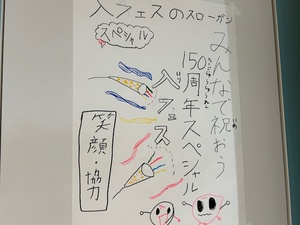 入フェスのスローガン
スペシャル
みんなで祝おう
150周年スペシャル
入フェス
笑顔・協力